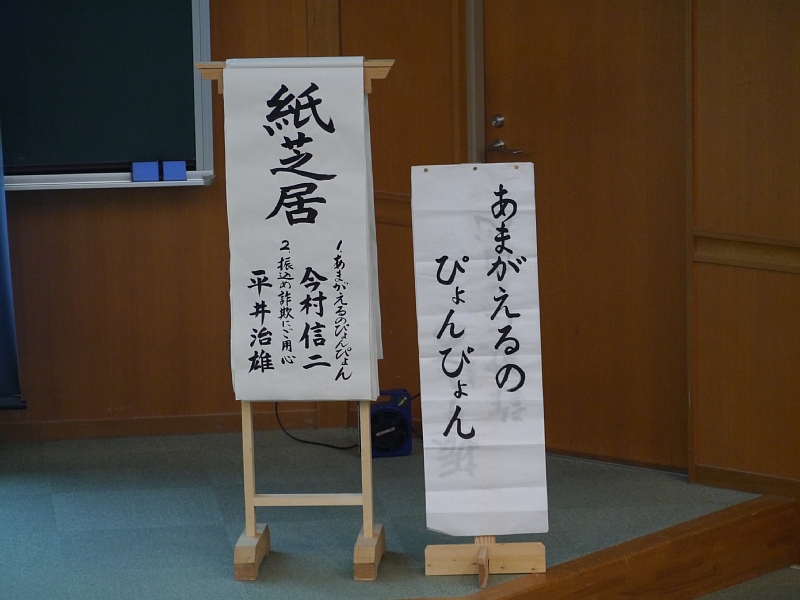 紙芝居
1.あまがえるのぴょんぴょん
今村信二
2.振込め詐欺にご用心
平井治雄
あまがえるの
ぴょんぴょん